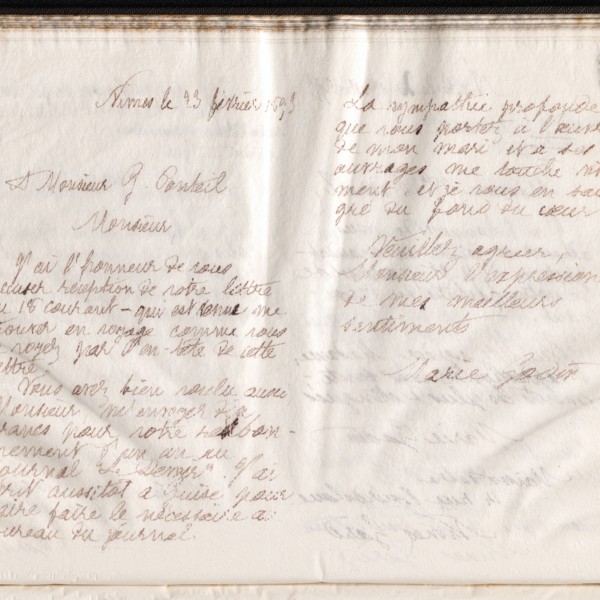 Nimes le 23 février 189
A Monsieur G. Ponteil
Monsieur
J'ai l'honneur de vous
cuser réception de votre lettre
u 18 courant - qui est venue me
rouver en voyage comme vous
voyez par l'en-tête de cette
ettre.
Vous avez bien voulu aussi
Monsieur m'envoyer
rancs pour votre réabon-
nement d'un an au
ournal "Le Devoir". J'ai
crit aussitôt à Guise pour
aire faire le nécessaire au
ureau du journal.
La sympathie profonde
que vous portez à l'œuvre
de mon mari et à ses
ouvrages me touche vi
ment et je vous en sai
gré du fond du cœur
Veuillez agréer,
Monsieur l'expression
de mes meilleurs
sentiments
Marie Godin